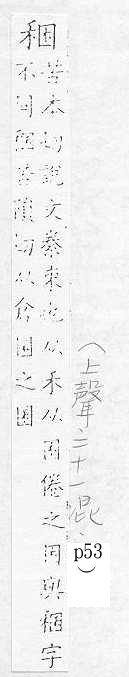 稇
苦本切說文絭束也从禾从困倦之困與稛字
不同稛苦隕切从倉囷之囷
(上聲二十一混、p53)